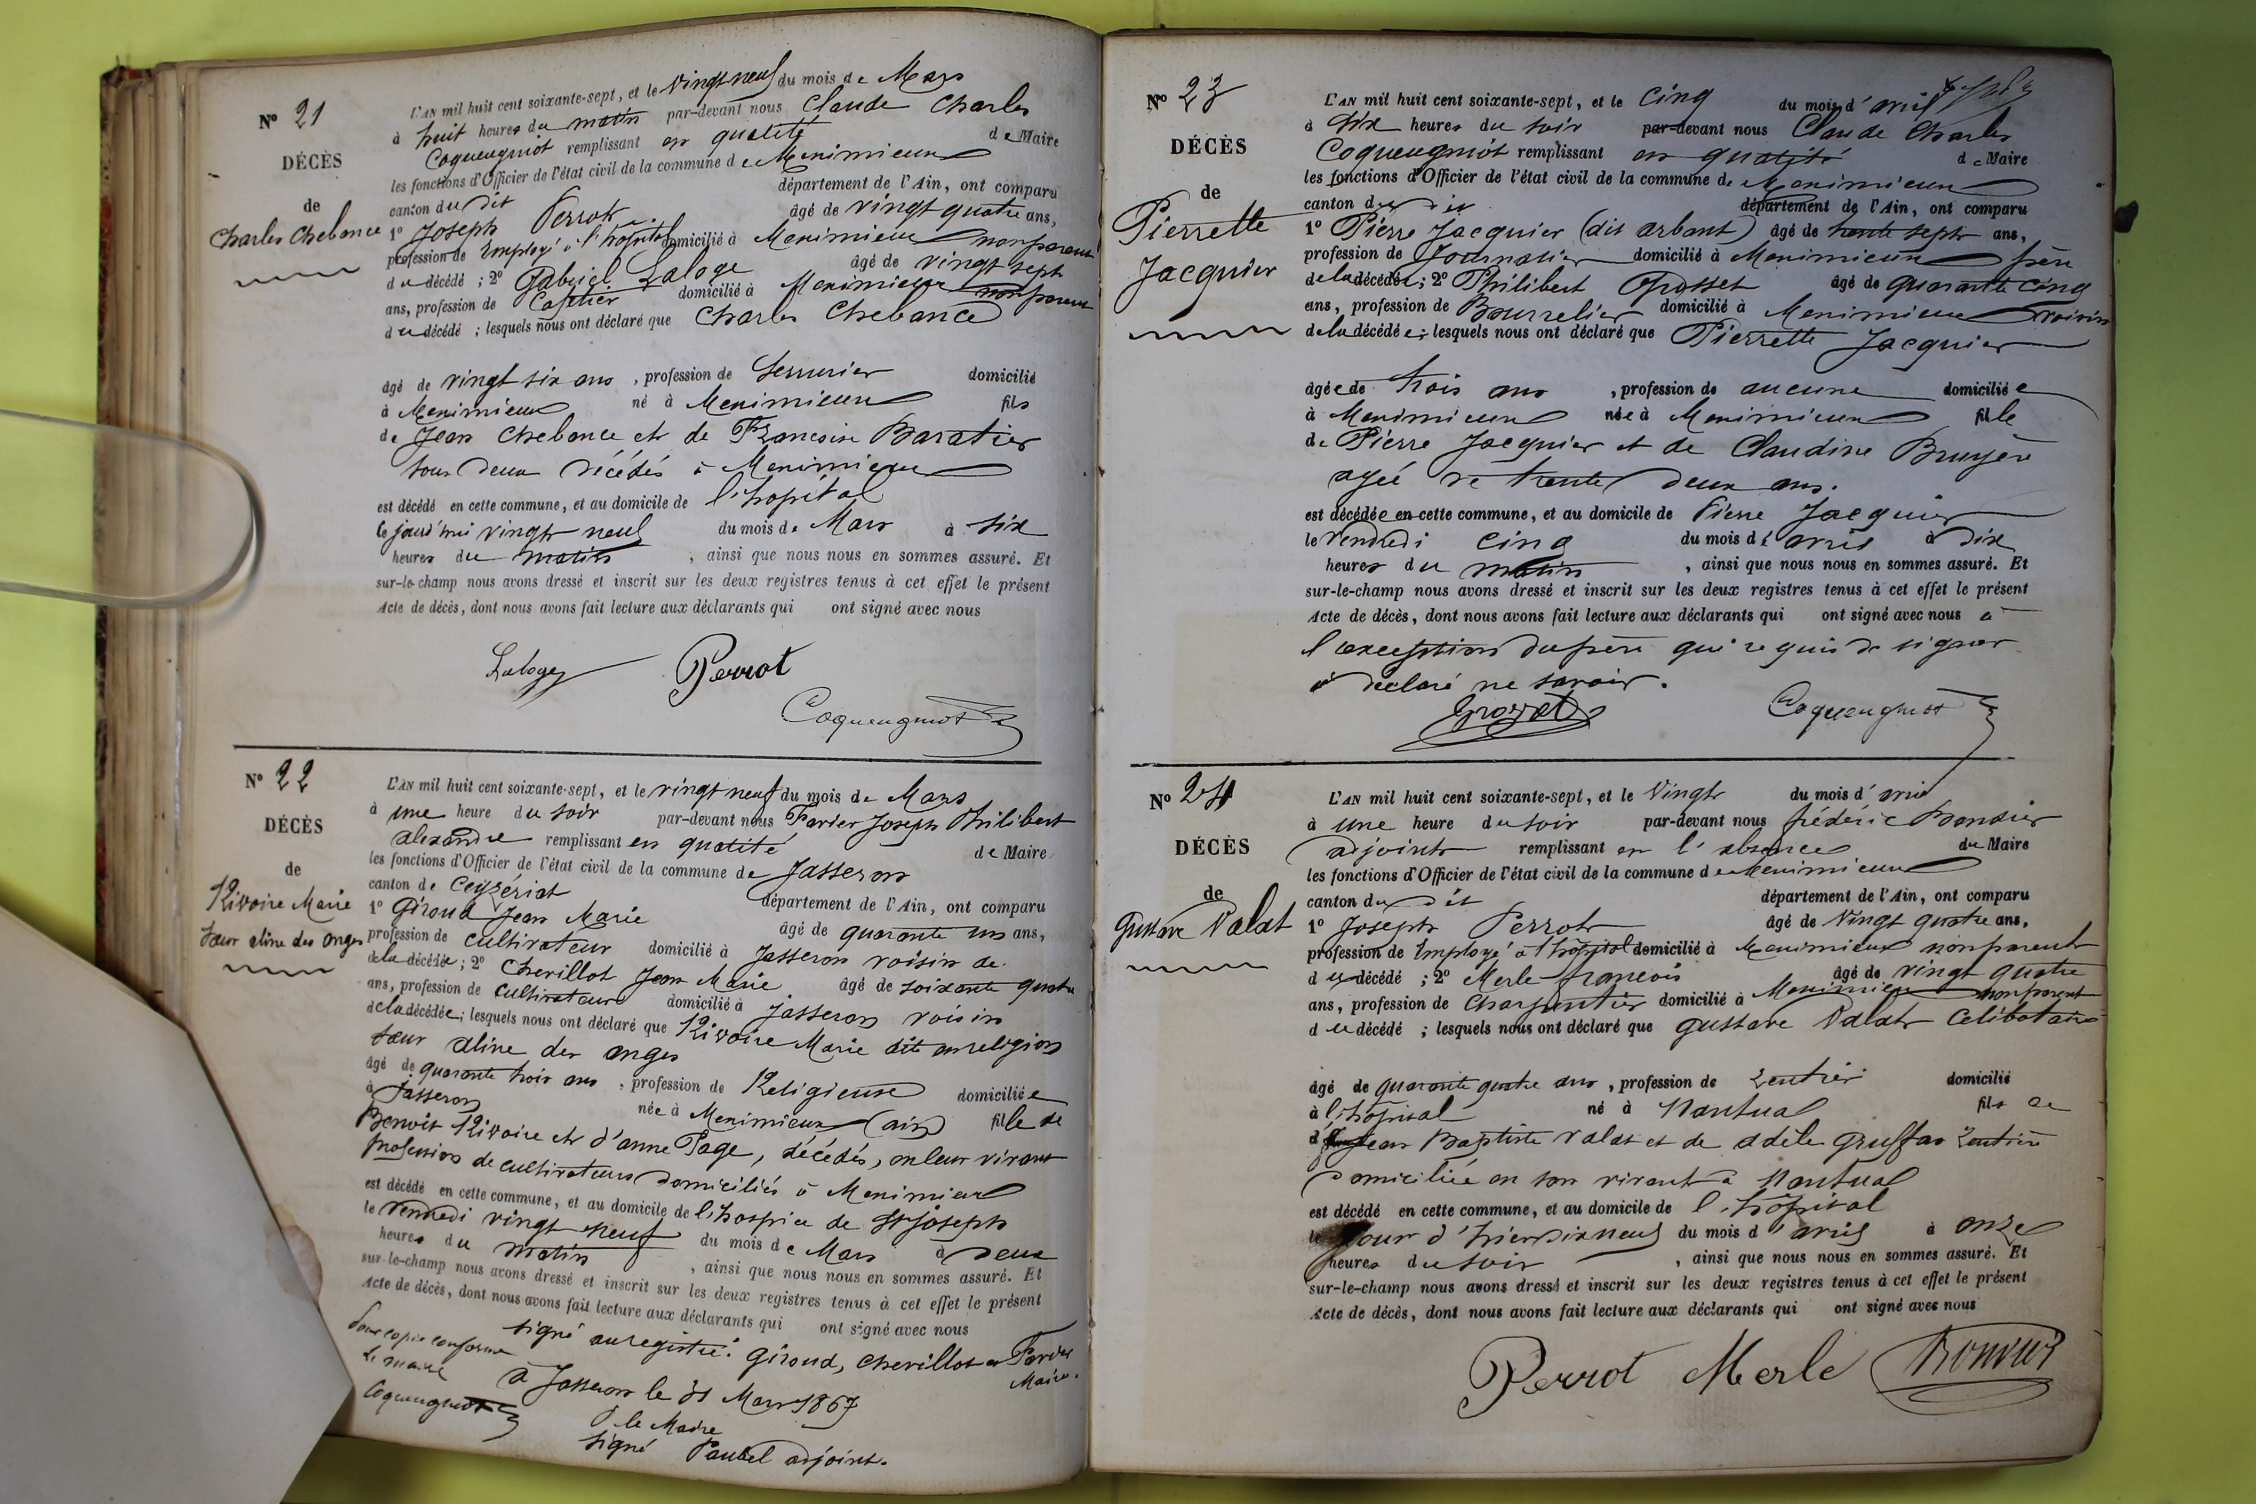 N° 21
DÉCÈS
de
Charles Chebance
L'AN mil huit cent soixante-sept, et le vingt neuf du mois de Mars
à huit heures du matin par-devant nous Claude Charles
Coqueugniot remplissant en qualité de Maire
les fonctions d'Officier de l'état civil de la commune de Meximieux
canton du dit département de l'Ain, ont comparu
1° Joseph Perrot âgé de vingt quatre ans,
profession de Employé à l'hôpital domicilié à Meximieux non parent
du décédé ; 2° Gabriel Laloge âgé de vingt sept
ans, profession de domicilié à Meximieux non parent
du décédé ; lesquels nous ont déclaré que Charles Chebance
âgé de vingt six ans , profession de Serrurier domicilié
à Meximieux né à Meximieux fils
de Jean Chebance et de Françoise Baratier
tous deux décédés à Meximieux
est décédé en cette commune, et au domicile de l'hopital
le jourd'hui vingt neuf du mois de Mars à six
heures du matin , ainsi que nous nous en sommes assuré. Et
sur-le-champ nous avons dressé et inscrit sur les deux registres tenus à cet effet le présent
Acte de décès, dont nous avons fait lecture aux déclarants qui ont signé avec nous
Laloge Perrot
Coqueugniot
N° 22
DÉCÈS
de
Rivoire Marie
sœur aline des anges
L'AN mil huit cent soixante-sept, et le vingt neuf du mois de Mars
à une heure du soir par-devant nous Favier Joseph Philibert
alexandre remplissant en qualité de Maire
les fonctions d'Officier de l'état civil de la commune de Jasseron
canton de Ceyzériat département de l'Ain, ont comparu
1° Giroud Jean Marie âgé de quarante un ans,
profession de cultivateur domicilié à Jasseron voisin de
de la décédée ; 2° Chevillot Jean Marie âgé de soixante quatre
ans, profession de cultivateur domicilié à Jasseron voisin
de la décédée ; lesquels nous ont déclaré que Rivoire Marie dite en religion
sœur aline des anges
âgé de quarante trois ans , profession de Religieuse domiciliée
à Jasseron née à Meximieux (ain) fille de
Benoit Rivoire et d'anne Page, décédés, en leur vivant
profession de cultivateurs domiciliés à Meximieux
est décédé en cette commune, et au domicile de l'hospice de St joseph
le vendredi vingt neuf du mois de Mars à deux
heures du matin , ainsi que nous nous en sommes assuré. Et
sur-le-champ nous avons dressé et inscrit sur les deux registres tenus à cet effet le présent
Acte de décès, dont nous avons fait lecture aux déclarants qui ont signé avec nous
signé au registre : Giroud, Chevillot et Favier
Maire.
Pour copie conforme
Le maire
Coqueugniot
à Jasseron le 31 Mars 1867
le Maire
signé Paubel adjoint.
N° 23
DÉCÈS
de
Pierrette
Jacquier
L'AN mil huit cent soixante-sept, et le cinq du mois d'avril
à six heures du soir par-devant nous Claude Charles
Coqueugniot remplissant en qualité de Maire
les fonctions d'Officier de l'état civil de la commune de Meximieux
canton du dit département de l'Ain, ont comparu
1° Pierre Jacquier (dit arbant) âgé de trente sept ans,
profession de Journalier domicilié à Meximieux père
de la décédée ; 2° Philibert Grosset âgé de quarante cinq
ans, profession de Bourrelier domicilié à Meximieux voisin
de la décédée ; lesquels nous ont déclaré que Pierrette Jacquier
âgée de trois ans , profession de aucune domiciliée
à Meximieux née à Meximieux fille
de Pierre Jacquier et de Claudine Bruyère
agée de trente deux ans.
est décédée en cette commune, et au domicile de Pierre Jacquier
le vendredi cinq du mois d'avril à dix
heures du matin , ainsi que nous nous en sommes assuré. Et
sur-le-champ nous avons dressé et inscrit sur les deux registres tenus à cet effet le présent
Acte de décès, dont nous avons fait lecture aux déclarants qui ont signé avec nous à
l'exception du père qui requis de signer
a déclaré ne savoir.
Grosset Coqueugniot
N° 24
DÉCÈS
de
Gustave Valat
L'AN mil huit cent soixante-sept, et le vingt du mois d'avril
à une heure du soir par-devant nous frédéric
adjoint remplissant en l'absence du Maire
les fonctions d'Officier de l'état civil de la commune de Meximieux
canton du dit département de l'Ain, ont comparu
1° Joseph Perrot âgé de vingt quatre ans,
profession de Employé à l'hôpital domicilié à Meximieux non parent
du décédé ; 2° Merle françois âgé de vingt quatre
ans, profession de Charpentier domicilié à Meximieux non parent
du décédé ; lesquels nous ont déclaré que gustave Valat Célibataire
âgé de quarante quatre ans , profession de rentier domicilié
à l'hôpital né à Nantua fils de
Jean Baptiste Valat et de adèle Gruffas rentière
domiciliée en son vivant à Nantua
est décédé en cette commune, et au domicile de l'hôpital
le jour d'hier dix neuf du mois d'avril à onze
heures du soir , ainsi que nous nous en sommes assuré. Et
sur-le-champ nous avons dressé et inscrit sur les deux registres tenus à cet effet le présent
Acte de décès, dont nous avons fait lecture aux déclarants qui ont signé avec nous
Perrot Merle